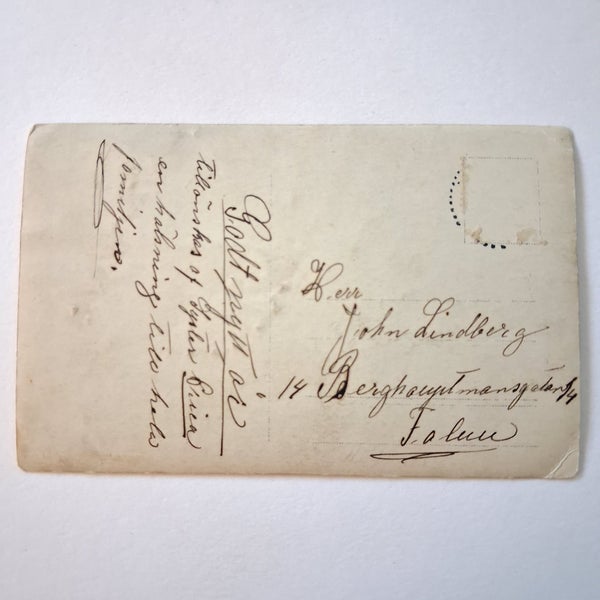 Godt nytt år
tillönskas af Syster Erica
en hälsning till hela
familjen.
Herr
John Lindberg
14 Berghauptmansgatan 14
Falun